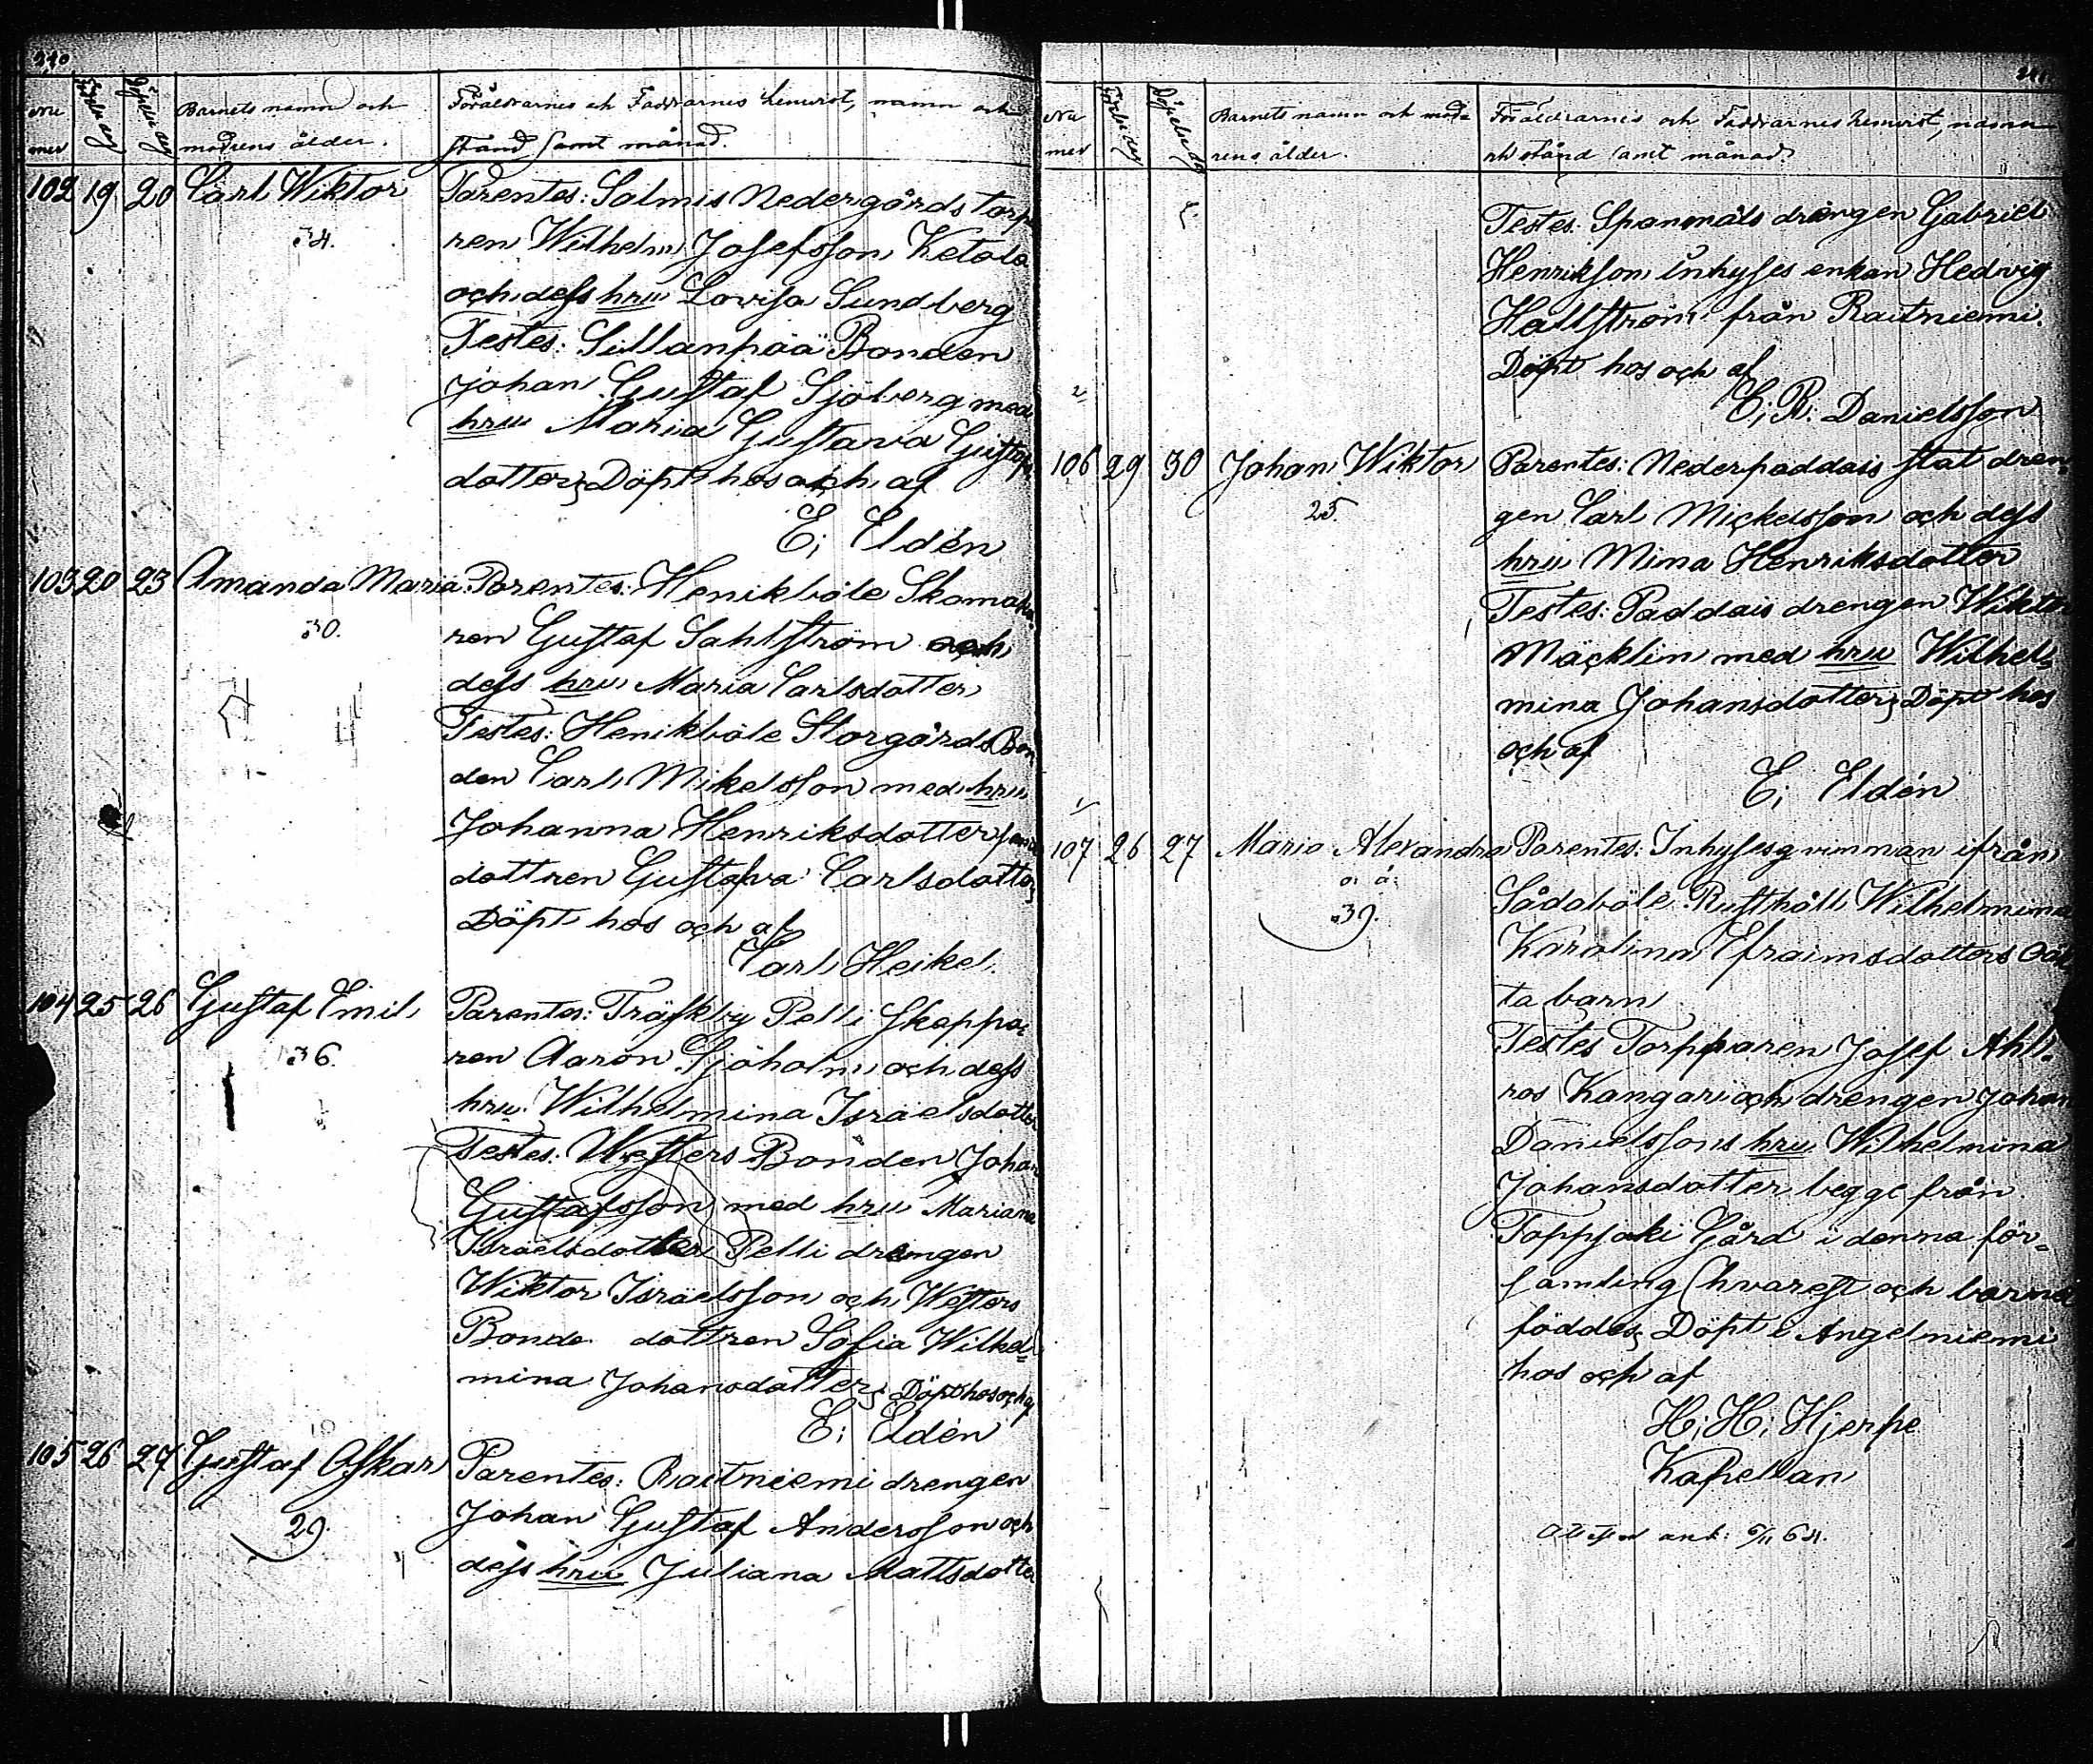 340
Nu
mer
Födelse dag
Döpelse dag
Barnets namn och
modrens ålder.
Föräldrarnes och Faddrarnes hemvist, namn och
stånd samt månad.
102 19 20 Carl Wiktor
34.
Parentes: Salmis Nedergårds torpa
ren Wilhelm Josefsson Ketola
och dess hru Lovisa Sundberg
Testes: Sillanpää Bonden
Johan Gustaf Sjöberg med
hru Maria Gustava Gustafs
dotter; Döpt hos och af
E; Eldén
103 20 23 Amanda Maria
30.
Parentes: Henikböle Skomaka
ren Gustaf Sahlström och
dess hru Maria Carlsdotter
Testes: Henikböle Storgårds Bon
den Carl Mikelsson med hru
Johanna Henriksdotter samt
dottren Gustafva Carlsdotter;
Döpt hos och af
Carl Heikel.
104 25 26 Gustaf Emil
36.
Parentes: Träskby Pelli Skeppa
ren Aaron Sjöholm och dess
hru Wilhelmina Israelsdotter
Testes: Westers Bonden Johan
Gustafsson med hru Mariana
Israelsdotter Pelli drengen
Wiktor Israelsson och Westers
Bonde dottren Sofia Wilhel=
mina Johansdotter; Döpt hos och af
E; Eldén
105 26 27 Gustaf Oskar
29.
Parentes: Raitniemi drengen
Johan Gustaf Andersson och
dess hru Juliana Mattsdotter
Nu
mer
Födelse dag
Döpelse dag
Barnets namn och mod
rens ålder.
Föräldrarnes och Faddrarnes hemvist, namn
och stånd samt månad.
Testes: Spanmåls drengen Gabriel
Henriksson inhyses enkan Hedwig
Hallström från Raitniemi.
Döpt hos och af
C; R; Danielsson
106 29 30 Johan Wiktor
25.
Parentes: Nederpaddais stat dren
gen Carl Mickelsson och dess
hru Mina Henriksdotter
Testes: Paddais drengen Wiktor
Mäcklin med hru Wilhel
mina Johansdotter; Döpt hos
och af
E; Eldén
107 26 27 Maria Alexandra
o. ä.
39.
Parentes: Inhysesqvinnan ifrån
Sådaböle Rusthåll Wilhelmina
Karolina Efraimsdotters oäk
ta barn
Testes Torpparen Josef Ahl
ros Kangari och drengen Johan
Danielssons hru Wilhelmina
Johansdotter begge från
Toppjoki Gård i denna för=
samling (hvarest och barnet
föddes; Döpt i Angelniemi
hos och af
H; H; Hjerpe
Kapellan
Attest ank: 6/11 64.